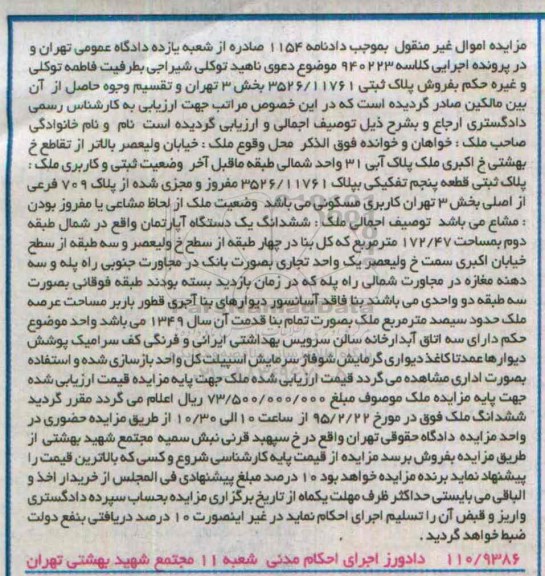 مزایده اموال غیر منقول بموجب دادنامه 1154 صادره از شعبه یازده دادگاه عمومی تهران و
در پرونده اجرایی کلاسه 940223 موضوع دعوی ناهید توکلی شیراجی بطرفیت فاطمه توکلی
و غیره حکم بفروش پلاک ثبتی 3526/11761 بخش 3 تهران و تقسیم وجوه حاصل از آن
بین مالکین صادر گردیده است که در این خصوص مراتب جهت ارزیابی به کارشناس رسمی
دادگستری ارجاع و بشرح ذیل توصیف اجمالی و ارزیابی گردیده است نام و نام خانوادگی
صاحب ملک : خواهان و خوانده فوق الذکر محل وقوع ملک : خیابان ولیعصر بالاتر از تقاطع خ
بهشتی خ اکبری ملک پلاک آبی 31 واحد شمالی طبقه ماقبل آخر وضعیت ثبتی و کاربری ملک :
پلاک ثبتی قطعه پنجم تفکیکی بپلاک 3526/11761 مفروز و مجزی شده از پلاک 709 فرعی
از اصلی بخش 3 تهران کاربری مسکونی می باشد وضعیت ملک از لحاظ مشاعی یا مفروز بودن
: مشاع می باشد توصیف اجمالی ملک : ششدانگ یک دستگاه آپارتمان واقع در شمال طبقه
دوم بمساحت 172/47 مترمربع که کل بنا در چهار طبقه از سطح خ ولیعصر و سه طبقه از سطح
خیابان اکبری سمت خ ولیعصر یک واحد تجاری بصورت بانک در مجاورت جنوبی راه پله و سه
دهنه مغازه در مجاورت شمالی راه پله که در زمان بازدید بسته بودند طبقه فوقانی بصورت
سه طبقه دو واحدی می باشند بنا فاقد آسانسور دیوارهای بنا آجری قطور باربر مساحت عرصه
ملک حدود سیصد متر مربع ملک بصورت تمام بنا قدمت آن سال 1349 می باشد واحد موضوع
حکم دارای سه اتاق آبدارخانه سالن سرویس بهداشتی ایرانی و فرنگی کف سرامیک پوشش
دیوارها عمدتا کاغذ دیواری گرمایش شوفاژ سرمایش اسپیلت کل واحد بازسازی شده و استفاده
بصورت اداری مشاهده می گردد قیمت ارزیابی شده ملک جهت پایه مزایده قیمت ارزیابی شده
جهت پایه مزایده ملک موصوف مبلغ 73/500/000/000 ریال اعلام می گردد مقرر گردید
ششدانگ ملک فوق در مورخ 95/2/22 از ساعت 10 الی 10/30 از طریق مزایده حضوری در
واحد مزایده دادگاه حقوقی تهران واقع در خ سپهبد قرنی نبش سمیه مجتمع شهید بهشتی از
طریق مزایده بفروش برسد مزایده از قیمت پایه کارشناسی شروع و کسی که بالاترین قیمت را
پیشنهاد نماید برنده مزایده خواهد بود 10 درصد مبلغ پیشنهادی فی المجلس از خریدار اخذ و
الباقی می بایستی حداکثر ظرف مهلت یکماه از تاریخ برگزاری مزایده بحساب سپرده دادگستری
واریز و قبض آن را تسلیم اجرای احکام نماید در غیر اینصورت 10 درصد دریافتی بنفع دولت
ضبط خواهد گردید .
110/9386 دادورز اجرای احکام مدنی شعبه 11 مجتمع شهید بهشتی تهران